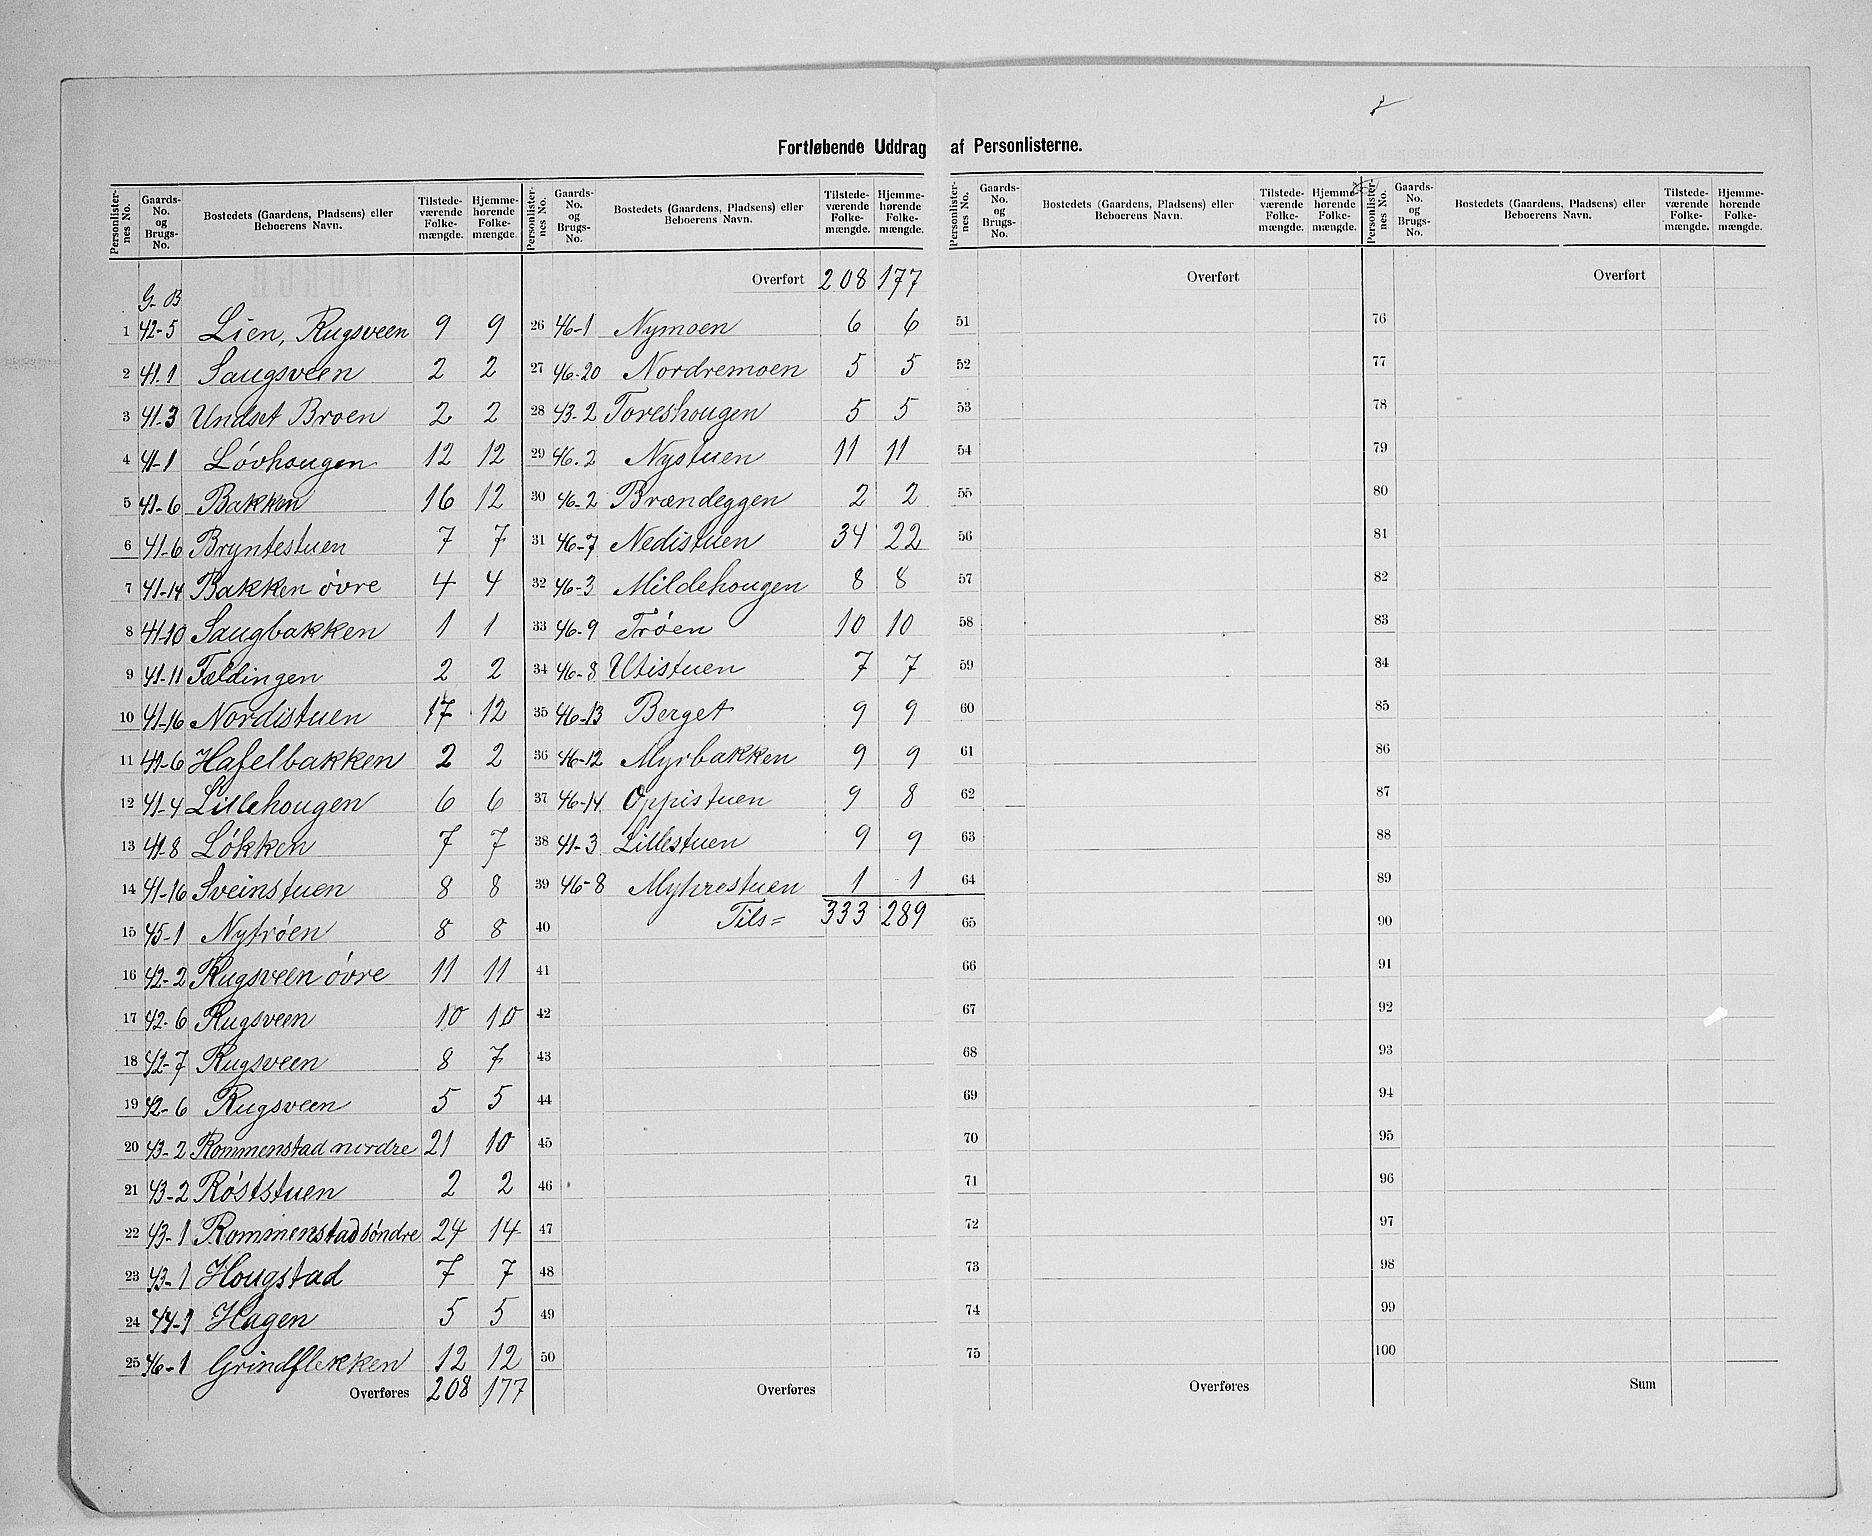 Fortløbende Uddrag af Personlisterne.
Personlisternes No. Gaards-No. og Brugs-No. Bostedets (Gaardens, Pladsens) eller Beboerens Navn. Tilstedeværende Folkemængde. Hjemmehørende Folkemængde.
G. B
1 42-5 Lien, Rugsveen 9 9
2 41.1 Saugsveen 2 2
3 41.3 Undset Broen 2 2
4 41-1 Lóvhougen 12 12
5 41-6 Bakken 16 12
6 41-6 Bryntestuen 7 7
7 41-14 Bakken óvre 4 4
8 41-10 Saugbakken 1 1
9 41-11 Fældingen 2 2
10 41-16 Nordistuen 17 12
11 41-6 Hafelbakken 2 2
12 41-4 Lillehougen 6 6
13 41-8 Lókken 7 7
14 41-16 Sveinstuen 8 8
15 45-1 Nytróen 8 8
16 42-2 Rugsveen óvre 11 11
17 42-6 Rugsveen 10 10
18 42-7 Rugsveen 8 7
19 42-6 Rugsveen 5 5
20 43-2 Rommenstad nordre 21 10
21 43-2 Róststuen 2 2
22 43-1 Rommenstad sóndre 24 14
23 43-1 Hougstad 7 7
24 44-1 Hagen 5 5
25 46-1 Grindflekken 12 12
Overføres 208 177
Personlisternes No. Gaards-No. og Brugs-No. Bostedets (Gaardens, Pladsens) eller Beboerens Navn. Tilstedeværende Folkemængde. Hjemmehørende Folkemængde.
Overført 208 177
26 46-1 Nymoen 6 6
27 46-20 Nordremoen 5 5
28 43-2 Toreshougen 5 5
29 46.2 Nystuen 11 11
30 46-2 Brændeggen 2 2
31 46-7 Nedistuen 34 22
32 46-3 Mildehougen 8 8
33 46-9 Tróen 10 10
34 46-8 Utistuen 7 7
35 46-13 Berget 9 9
36 46-12 Myrbakken 9 9
37 46-14 Oppistuen 9 8
38 41-3 Lillestuen 9 9
39 46-8 Myhrestuen 1 1
40 Tils= 333 289
41
42
43
44
45
46
47
48
49
50
Overføres
Personlisternes No. Gaards-No. og Brugs-No. Bostedets (Gaardens, Pladsens) eller Beboerens Navn. Tilstedeværende Folkemængde. Hjemmehørende Folkemængde.
Overført
51
52
53
54
55
56
57
58
59
60
61
62
63
64
65
66
67
68
69
70
71
72
73
74
75
Overføres
Personlisternes No. Gaards-No. og Brugs-No. Bostedets (Gaardens, Pladsens) eller Beboerens Navn. Tilstedeværende Folkemængde. Hjemmehørende Folkemængde.
Overført
76
77
78
79
80
81
82
83
84
85
86
87
88
89
90
91
92
93
94
95
96
97
98
99
100
Sum